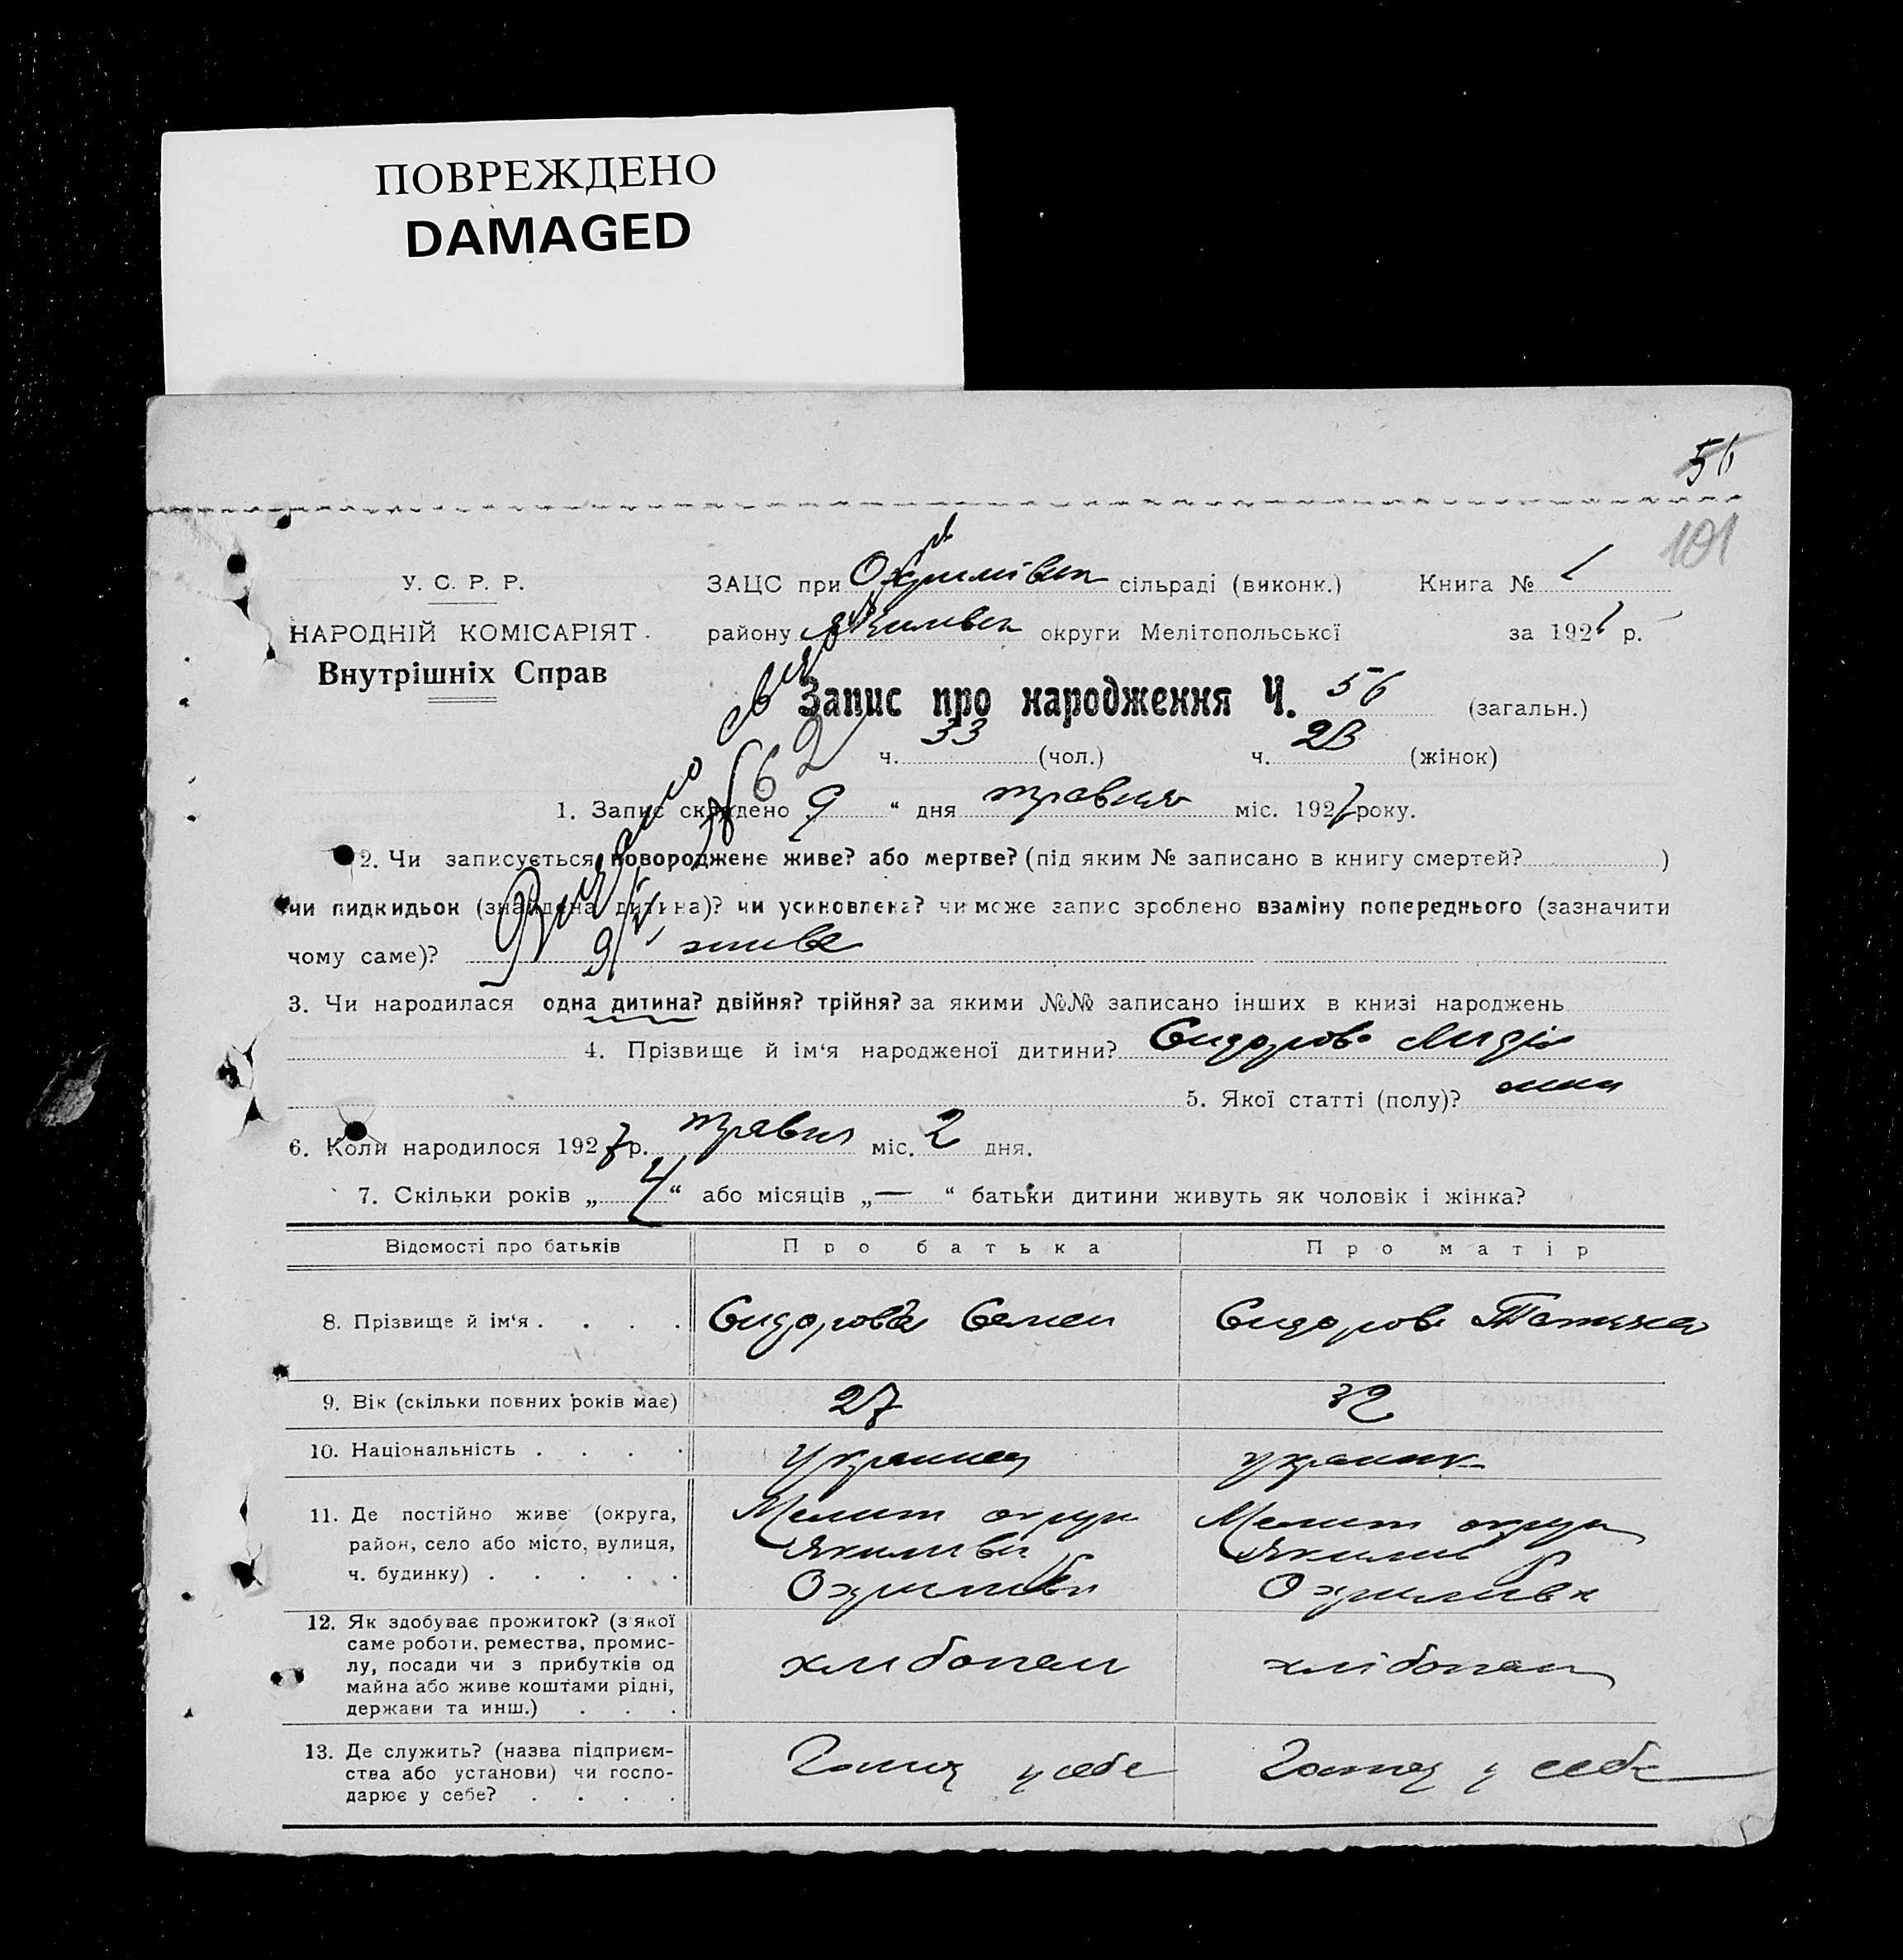 ПОВРЕЖДЕНО
DAMAGED
56
101
У. С. Р. Р.
НАРОДНІЙ КОМІСАРІЯТ.
Внутрішніх Справ
ЗАЦС при Охримівск сільраді (виконк.) Книга № 1
району Якимівск округи Мелітопольської за 192 р.
Запис про народження Ч. 56 (загальн.)
ч. 33 (чол.) ч. 23 (жінок)
1. Запис складено 9 “ дня травня міс. 1927 року.
2. Чи записується новороджене живе? або мертве? (під яким № записано в книгу смертей? )
чи пидкидьок (знайдена дитина)? чи усиновлена? чи може запис зроблено взаміну попереднього (зазначити
чому саме)? живе
3. Чи народилася одна дитина? двійня? трійня? за якими №№ записано інших в книзі народжень
4. Прізвище й ім‘я народженої дитини? Сидорова Лидія
5. Якої статті (полу)? жін
6. Коли народилося 1927 р. травня міс. 2 дня.
7. Скільки років „ 4 “ або місяців „ — “ батьки дитини живуть як чоловік і жінка?
Відомості про батьків Про батька Про матір
8. Прізвище й ім‘я . . . . Сидоров Семен Сидорова Татяна
9. Вік (скільки повних років має) 27 32
10. Національність . . . . Украинец украинк
11. Де постійно живе (округа, район, село або місто, вулиця, ч. будинку) . . . . .
Мелит округ Мелит округ
Якимівск Якимів
Охримівк Охримівк
12. Як здобуває прожиток? (з якої саме роботи, ремества, промислу, посади чи з прибутків од майна або живе коштами рідні, держави та инш.) . . .
хлібопаш хлібопаш
13. Де служить? (назва підприємства або установи) чи господарює у себе? . . . .
у себе у себе